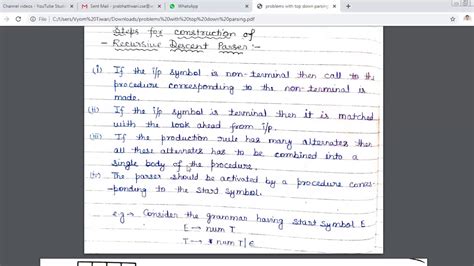 Channel videos - YouTube Stud
Sent Mail - prabhathwari.cse@
WhatsApp
problems with top down parsing
C:/Users/Vyom Tiwari/Downloads/problems%20with%20top%20down%20parsing.pdf
Steps for construction of
- Recursive Descent Parser :-
(i) If the i/p symbol is non-terminal then call to the
procedure corresponding to the non-terminal is
made.
(ii) If the i/p symbol is terminal then it is matched
with the look ahead from i/p.
(iii) If the production rule has many alternates then
all these alternates has to be combined into a
single body of the procedure.
(iv) The parser should be activated by a procedure corres-
ponding to the start symbol.
e.g → Consider the grammar having start symbol E
E → num T
T → * num T | ε